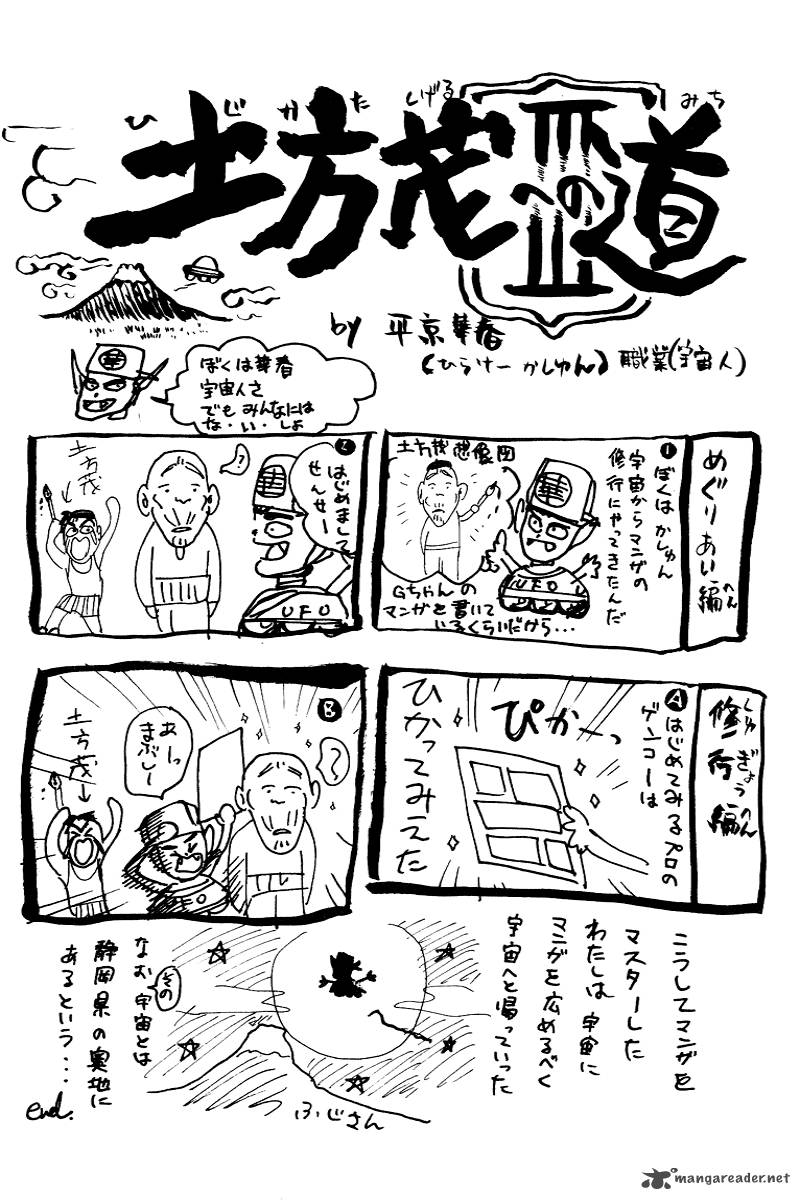 ひじかた しげる みち
土方茂への道
by 平京華春
(ひらけー かしゅん) 職業(宇宙人)
ぼくは華春
宇宙人さ
でもみんなには
な・い・しょ
めぐりあい編
へん
1
ぼくは かしゅん
宇宙からマンガの
修行にやってきたんだ
土方茂想像図
華
UFO
Gちゃんの
マンガを書いて
いるくらいだから...
2
はじめまして
せんせー
?
華
UFO
土方茂
修行編
しゅ ぎょう へん
A
はじめてみるプロの
ゲンコーは
ぴかーっ
ひかってみえた
B
?
あーっ
まぶしー
土方茂
こうしてマンガを
マスターした
わたしは 宇宙に
マンガを広めるべく
宇宙へと帰っていった
ふじさん
なお その宇宙とは
静岡県の奥地に
あるという...
end.
mangareader.net